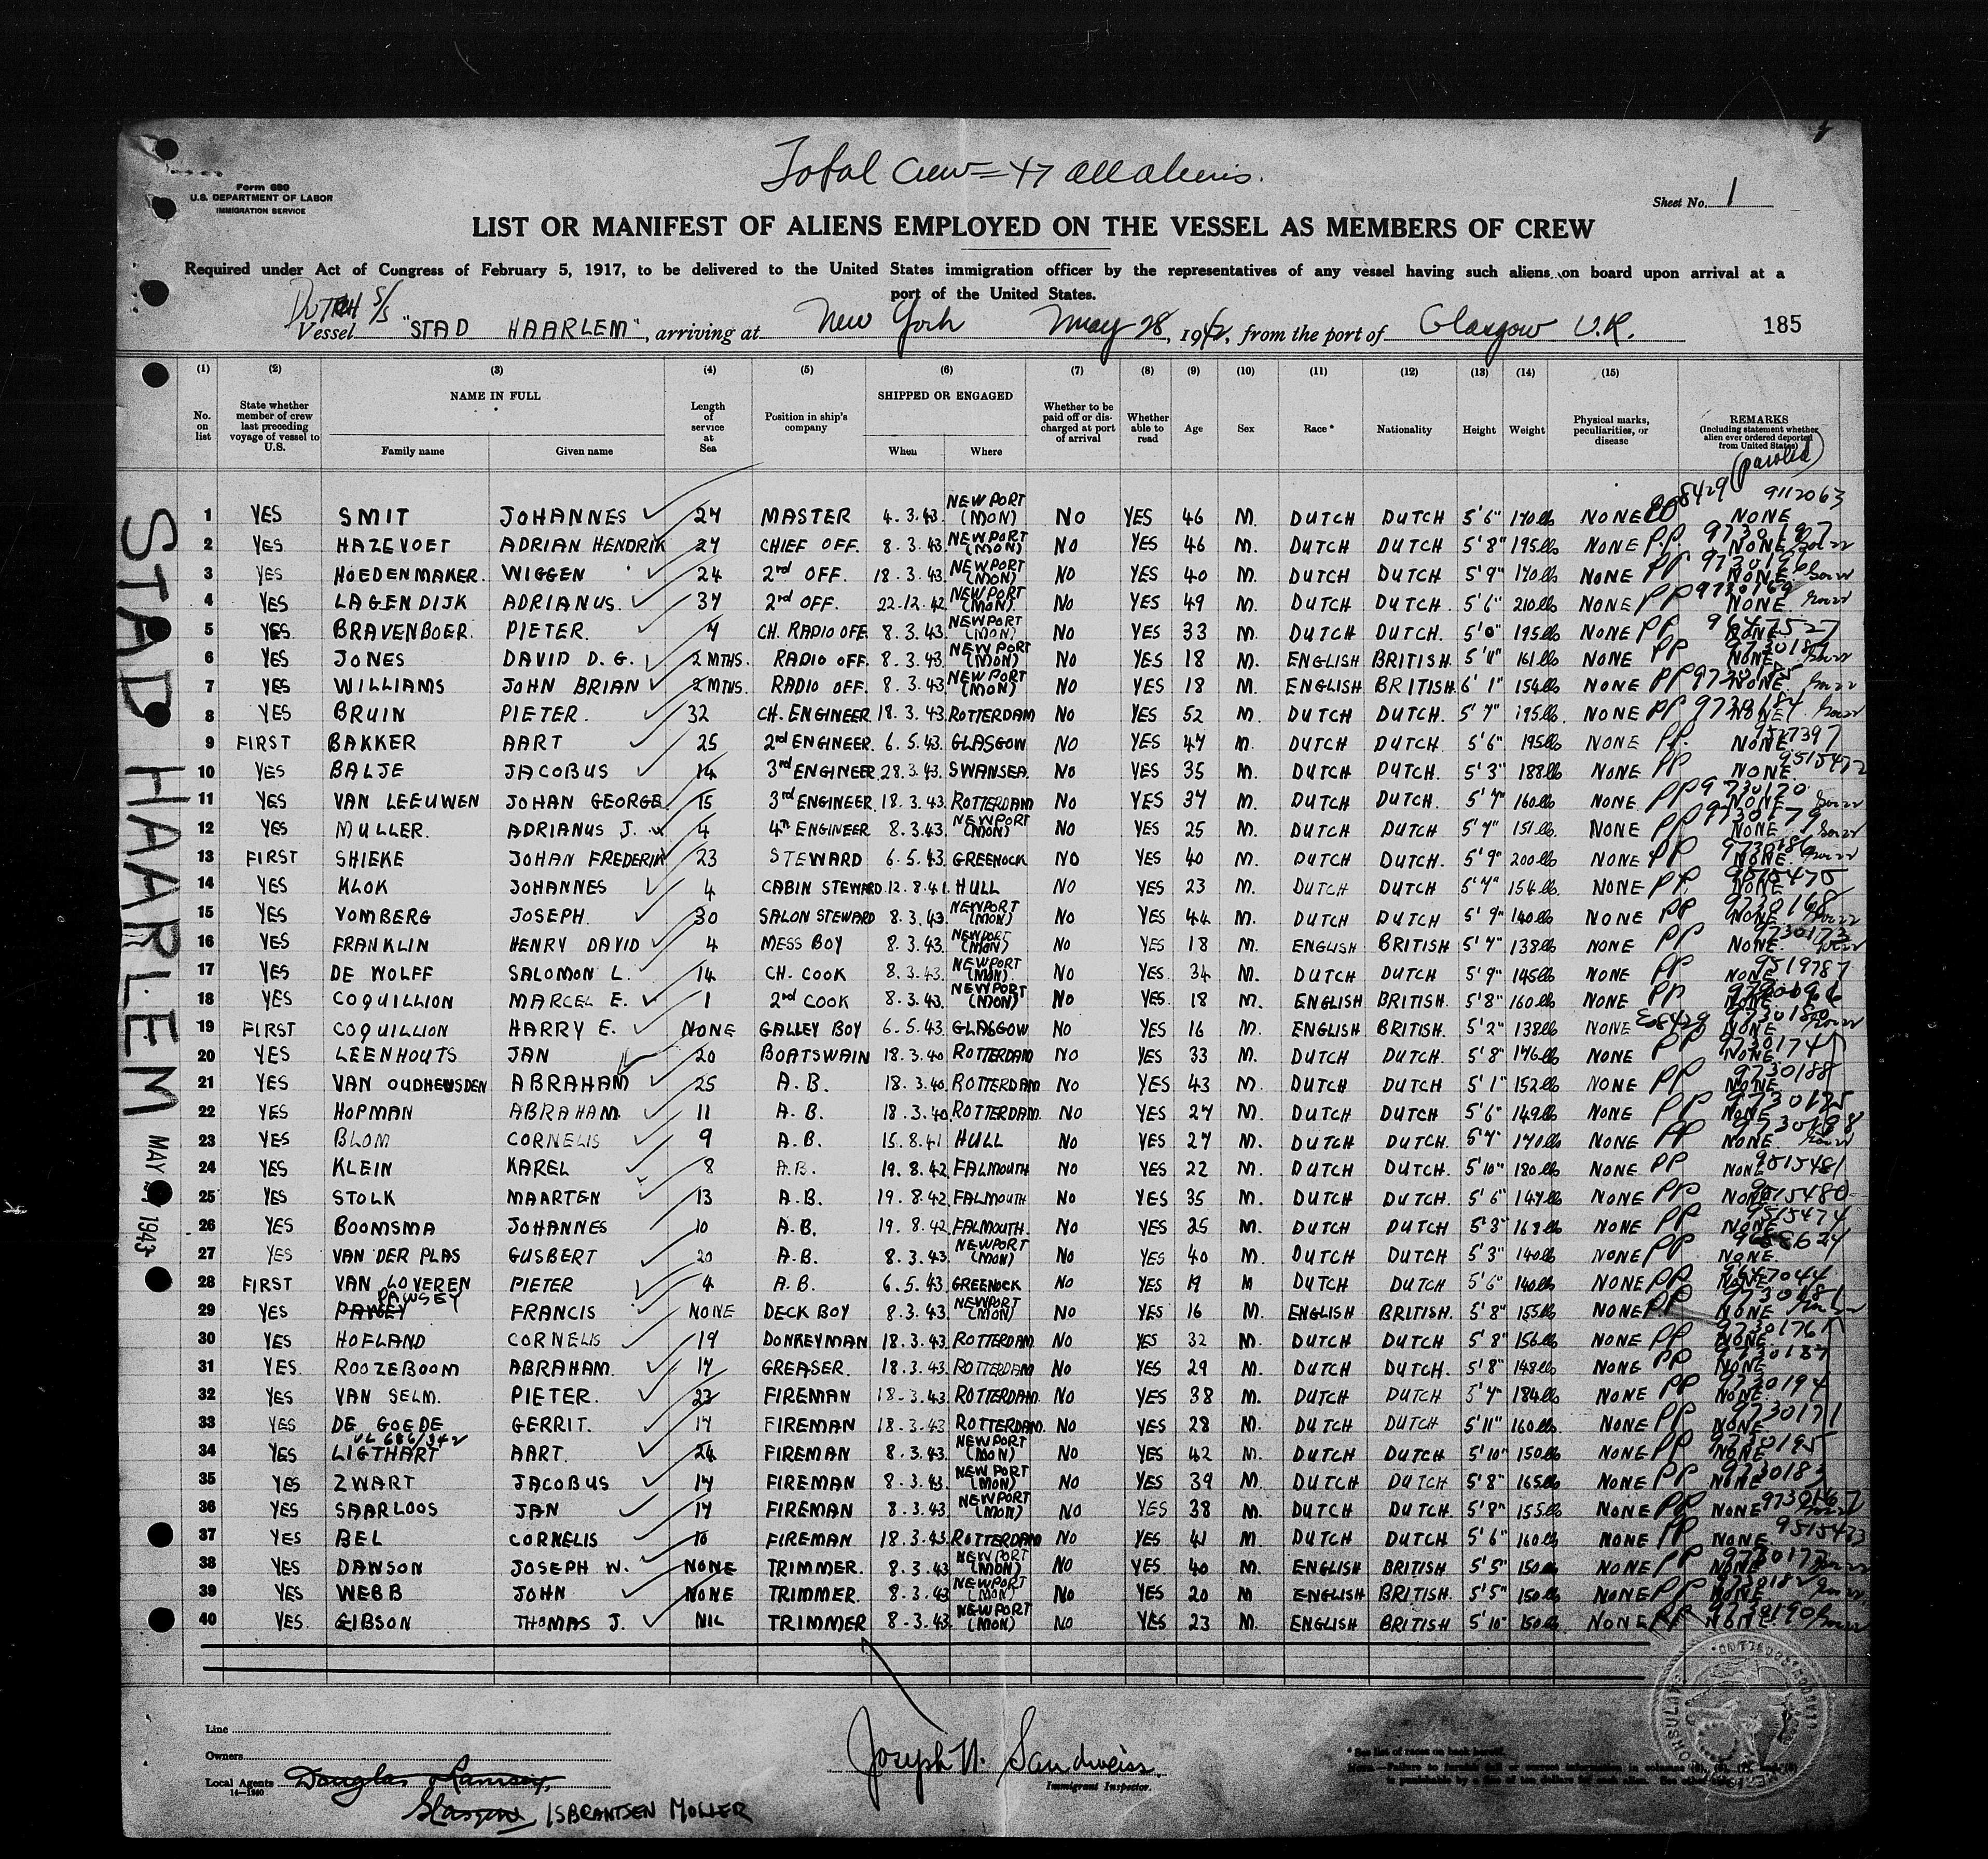 Total Crew = 47 all aliens.
Form 680
U.S. DEPARTMENT OF LABOR
IMMIGRATION SERVICE
Sheet No. 1
LIST OR MANIFEST OF ALIENS EMPLOYED ON THE VESSEL AS MEMBERS OF CREW
Required under Act of Congress of February 5, 1917, to be delivered to the United States immigration officer by the representatives of any vessel having such aliens on board upon arrival at a
port of the United States.
DUTCH S/S
Vessel "STAD HAARLEM", arriving at New York May 28, 194, from the port of Glasgow U.K. 185
(1) (2) (3) (4) (5) (6) (7) (8) (9) (10) (11) (12) (13) (14) (15)
No. on list
State whether member of crew last preceding voyage of vessel to U.S.
NAME IN FULL
Family name Given name
Length of service at Sea
Position in ship's company
SHIPPED OR ENGAGED
When Where
Whether to be paid off or discharged at port of arrival
Whether able to read
Age Sex Race* Nationality Height Weight
Physical marks, peculiarities, or disease
REMARKS
(Including statement whether alien ever ordered deported from United States)
(paroled)
8429 9112063
1 YES SMIT JOHANNES 27 MASTER 4.3.43. NEWPORT (MON) NO YES 46 M. DUTCH DUTCH 5'6" 170lb NONE NONE
2 YES HAZEVOET ADRIAN HENDRIK 27 CHIEF OFF. 8.3.43 NEWPORT (MON) NO YES 46 M. DUTCH DUTCH 5'8" 195lb NONE P.P. NONE
3 YES HOEDENMAKER. WIGGEN 24 2nd OFF. 18.3.43 NEWPORT (MON) NO YES 40 M. DUTCH DUTCH 5'9" 170lb NONE PP NONE.
4 YES LAGENDIJK ADRIANUS. 37 2nd OFF. 22.12.42 NEWPORT (MON). NO YES 49 M. DUTCH DUTCH. 5'6" 210lb NONE PP 9730169 NONE
5 YES. BRAVENBOER. PIETER. 7 CH. RADIO OFF 8.3.43. NEWPORT (MON) NO YES 33 M. DUTCH DUTCH. 5'0" 195lb NONE PP 9647527 NONE
6 YES JONES DAVID D.G. 2 MTHS. RADIO OFF. 8.3.43. NEWPORT (MON) NO YES 18 M. ENGLISH BRITISH. 5'11" 161lb NONE PP NONE
7 YES WILLIAMS JOHN BRIAN 2 MTHS. RADIO OFF. 8.3.43. NEWPORT (MON) NO YES 18 M. ENGLISH BRITISH 6'1" 154lb NONE PP NONE
8 YES BRUIN PIETER. 32 CH. ENGINEER 18.3.43. ROTTERDAM NO YES 52 M. DUTCH DUTCH. 5'7" 195lb. NONE PP 9730184 NONE
9 FIRST BAKKER AART 25 2nd ENGINEER. 6.5.43. GLASGOW NO YES 47 M. DUTCH DUTCH. 5'6" 195lb NONE PP. NONE
10 YES BALJE JACOBUS 14 3rd ENGINEER. 28.3.43. SWANSEA. NO YES 35 M. DUTCH DUTCH. 5'3" 188lb NONE PP 9515472 NONE.
11 YES VAN LEEUWEN JOHAN GEORGE 15 3rd ENGINEER. 18.3.43. ROTTERDAM NO YES 37 M. DUTCH DUTCH. 5'7" 160lb NONE PP 9730170 NONE
12 YES MULLER. ADRIANUS J. 4 4th ENGINEER 8.3.43. NEWPORT (MON) NO YES 25 M. DUTCH DUTCH 5'7" 151lb. NONE PP 9730179 NONE
13 FIRST SHIEKE JOHAN FREDERIK 23 STEWARD 6.5.43. GREENOCK NO YES 40 M. DUTCH DUTCH. 5'9" 200lb NONE PP NONE.
14 YES KLOK JOHANNES 4 CABIN STEWARD. 12.8.41. HULL NO YES 23 M. DUTCH DUTCH. 5'7" 154lb. NONE PP. 9515475 NONE
15 YES VOMBERG JOSEPH. 30 SALON STEWARD 8.3.43. NEWPORT (MON) NO YES 44 M. DUTCH DUTCH 5'9" 140lb NONE PP 9730168 NONE
16 YES FRANKLIN HENRY DAVID 4 MESS BOY 8.3.43. NEWPORT (MON) NO YES 18 M. ENGLISH BRITISH 5'7" 138lb NONE PP 9730173 NONE.
17 YES DE WOLFF SALOMON L. 14 CH. COOK 8.3.43. NEWPORT (MON) NO YES. 34 M. DUTCH DUTCH 5'9" 145lb NONE PP 9519787 NONE
18 YES COQUILLION MARCEL E. 1 2nd COOK 8.3.43. NEWPORT (MON) NO YES. 18 M. ENGLISH BRITISH. 5'8" 160lb NONE PP NONE
19 FIRST COQUILLION HARRY E. NONE GALLEY BOY 6.5.43. GLASGOW NO YES 16 M. ENGLISH BRITISH. 5'2" 138lb NONE 9730180 NONE
20 YES LEENHOUTS JAN 20 BOATSWAIN 18.3.40 ROTTERDAM NO YES 33 M. DUTCH DUTCH. 5'8" 176lb NONE PP 9730174 NONE.
21 YES VAN OUDHEUSDEN ABRAHAM 25 A.B. 18.3.40. ROTTERDAM NO YES 43 M. DUTCH DUTCH 5'1" 152lb NONE PP 9730188 NONE
22 YES HOPMAN ABRAHAM. 11 A.B. 18.3.40. ROTTERDAM. NO YES 27 M. DUTCH DUTCH 5'6" 149lb NONE PP NONE
23 YES BLOM CORNELIS 9 A.B. 15.8.41 HULL NO YES 27 M. DUTCH DUTCH. 5'7" 170lb NONE PP NONE.
24 YES KLEIN KAREL 8 A.B. 19.8.42. FALMOUTH NO YES 22 M. DUTCH DUTCH. 5'10" 180lb NONE. PP 9515481 NONE
25 YES STOLK MAARTEN 13 A.B. 19.8.42. FALMOUTH NO YES 35 M. DUTCH DUTCH. 5'6" 147lb NONE PP 9515480 NONE
26 YES BOOMSMA JOHANNES 10 A.B. 19.8.42. FALMOUTH. NO YES 25 M. DUTCH DUTCH 5'3" 168lb NONE PP 9515474 NONE
27 YES VAN DER PLAS GUSBERT 20 A.B. 8.3.43. NEWPORT (MON) NO YES 40 M. DUTCH DUTCH 5'3" 140lb NONE PP NONE.
28 FIRST VAN LOVEREN PIETER 4 A.B. 6.5.43. GREENOCK NO YES 19 M DUTCH DUTCH 5'6" 140lb NONE PP 9647044 NONE
29 YES PAWSEY FRANCIS NONE DECK BOY 8.3.43. NEWPORT (MON) NO YES 16 M. ENGLISH BRITISH. 5'8" 155lb NONE P.P 9730181 NONE
30 YES HOFLAND CORNELIS 19 DONKEYMAN 18.3.43. ROTTERDAM NO YES 32 M. DUTCH DUTCH 5'8" 156lb NONE PP 9730176 NONE
31 YES. ROOZEBOOM ABRAHAM. 17 GREASER. 18.3.43. ROTTERDAM NO YES 29 M. DUTCH DUTCH. 5'8" 148lb NONE PP 9730187 NONE
32 YES VAN SELM. PIETER. 23 FIREMAN 18.3.43. ROTTERDAM. NO YES 38 M. DUTCH DUTCH 5'7" 184lb NONE PP 9730194 NONE.
33 YES DE GOEDE GERRIT. 17 FIREMAN 18.3.43 ROTTERDAM. NO YES 28 M. DUTCH DUTCH 5'11" 160lb NONE PP 9730171 NONE
34 YES LIGTHART AART. 24 FIREMAN 8.3.43. NEWPORT (MON) NO YES 42 M. DUTCH DUTCH 5'10" 150lb NONE PP 9730195 NONE.
35 YES ZWART JACOBUS 17 FIREMAN 8.3.43. NEWPORT (MON) NO YES 39 M. DUTCH DUTCH 5'8" 165lb NONE PP 9730183 NONE
36 YES SAARLOOS JAN 17 FIREMAN 8.3.43. NEWPORT (MON) NO YES 38 M. DUTCH DUTCH. 5'8" 155lb NONE PP NONE 9730167
37 YES BEL CORNELIS 10 FIREMAN 18.3.43. ROTTERDAM NO YES 41 M. DUTCH DUTCH 5'6" 160lb NONE PP NONE 9515473
38 YES DAWSON JOSEPH W. NONE TRIMMER. 8.3.43. NEWPORT (MON) NO YES 40 M. ENGLISH BRITISH 5'5" 150lb NONE PP NONE
39 YES WEBB JOHN NONE TRIMMER. 8.3.43 NEWPORT (MON) NO YES 20 M ENGLISH BRITISH. 5'5" 150lb NONE PP 9730182 NONE.
40 YES. GIBSON THOMAS J. NIL TRIMMER 8.3.43. NEWPORT (MON) NO YES 23 M. ENGLISH BRITISH 5'10" 150lb. NONE PP 9730190 NONE.
STAD HAARLEM MAY 1943
Line
Owners
Local Agents Douglas Ramsey,
14-1240
Glasgow ISBRANTSEN MOLLER
Joseph N. Sandweiss
Immigrant Inspector.
* See list of races on back hereof.